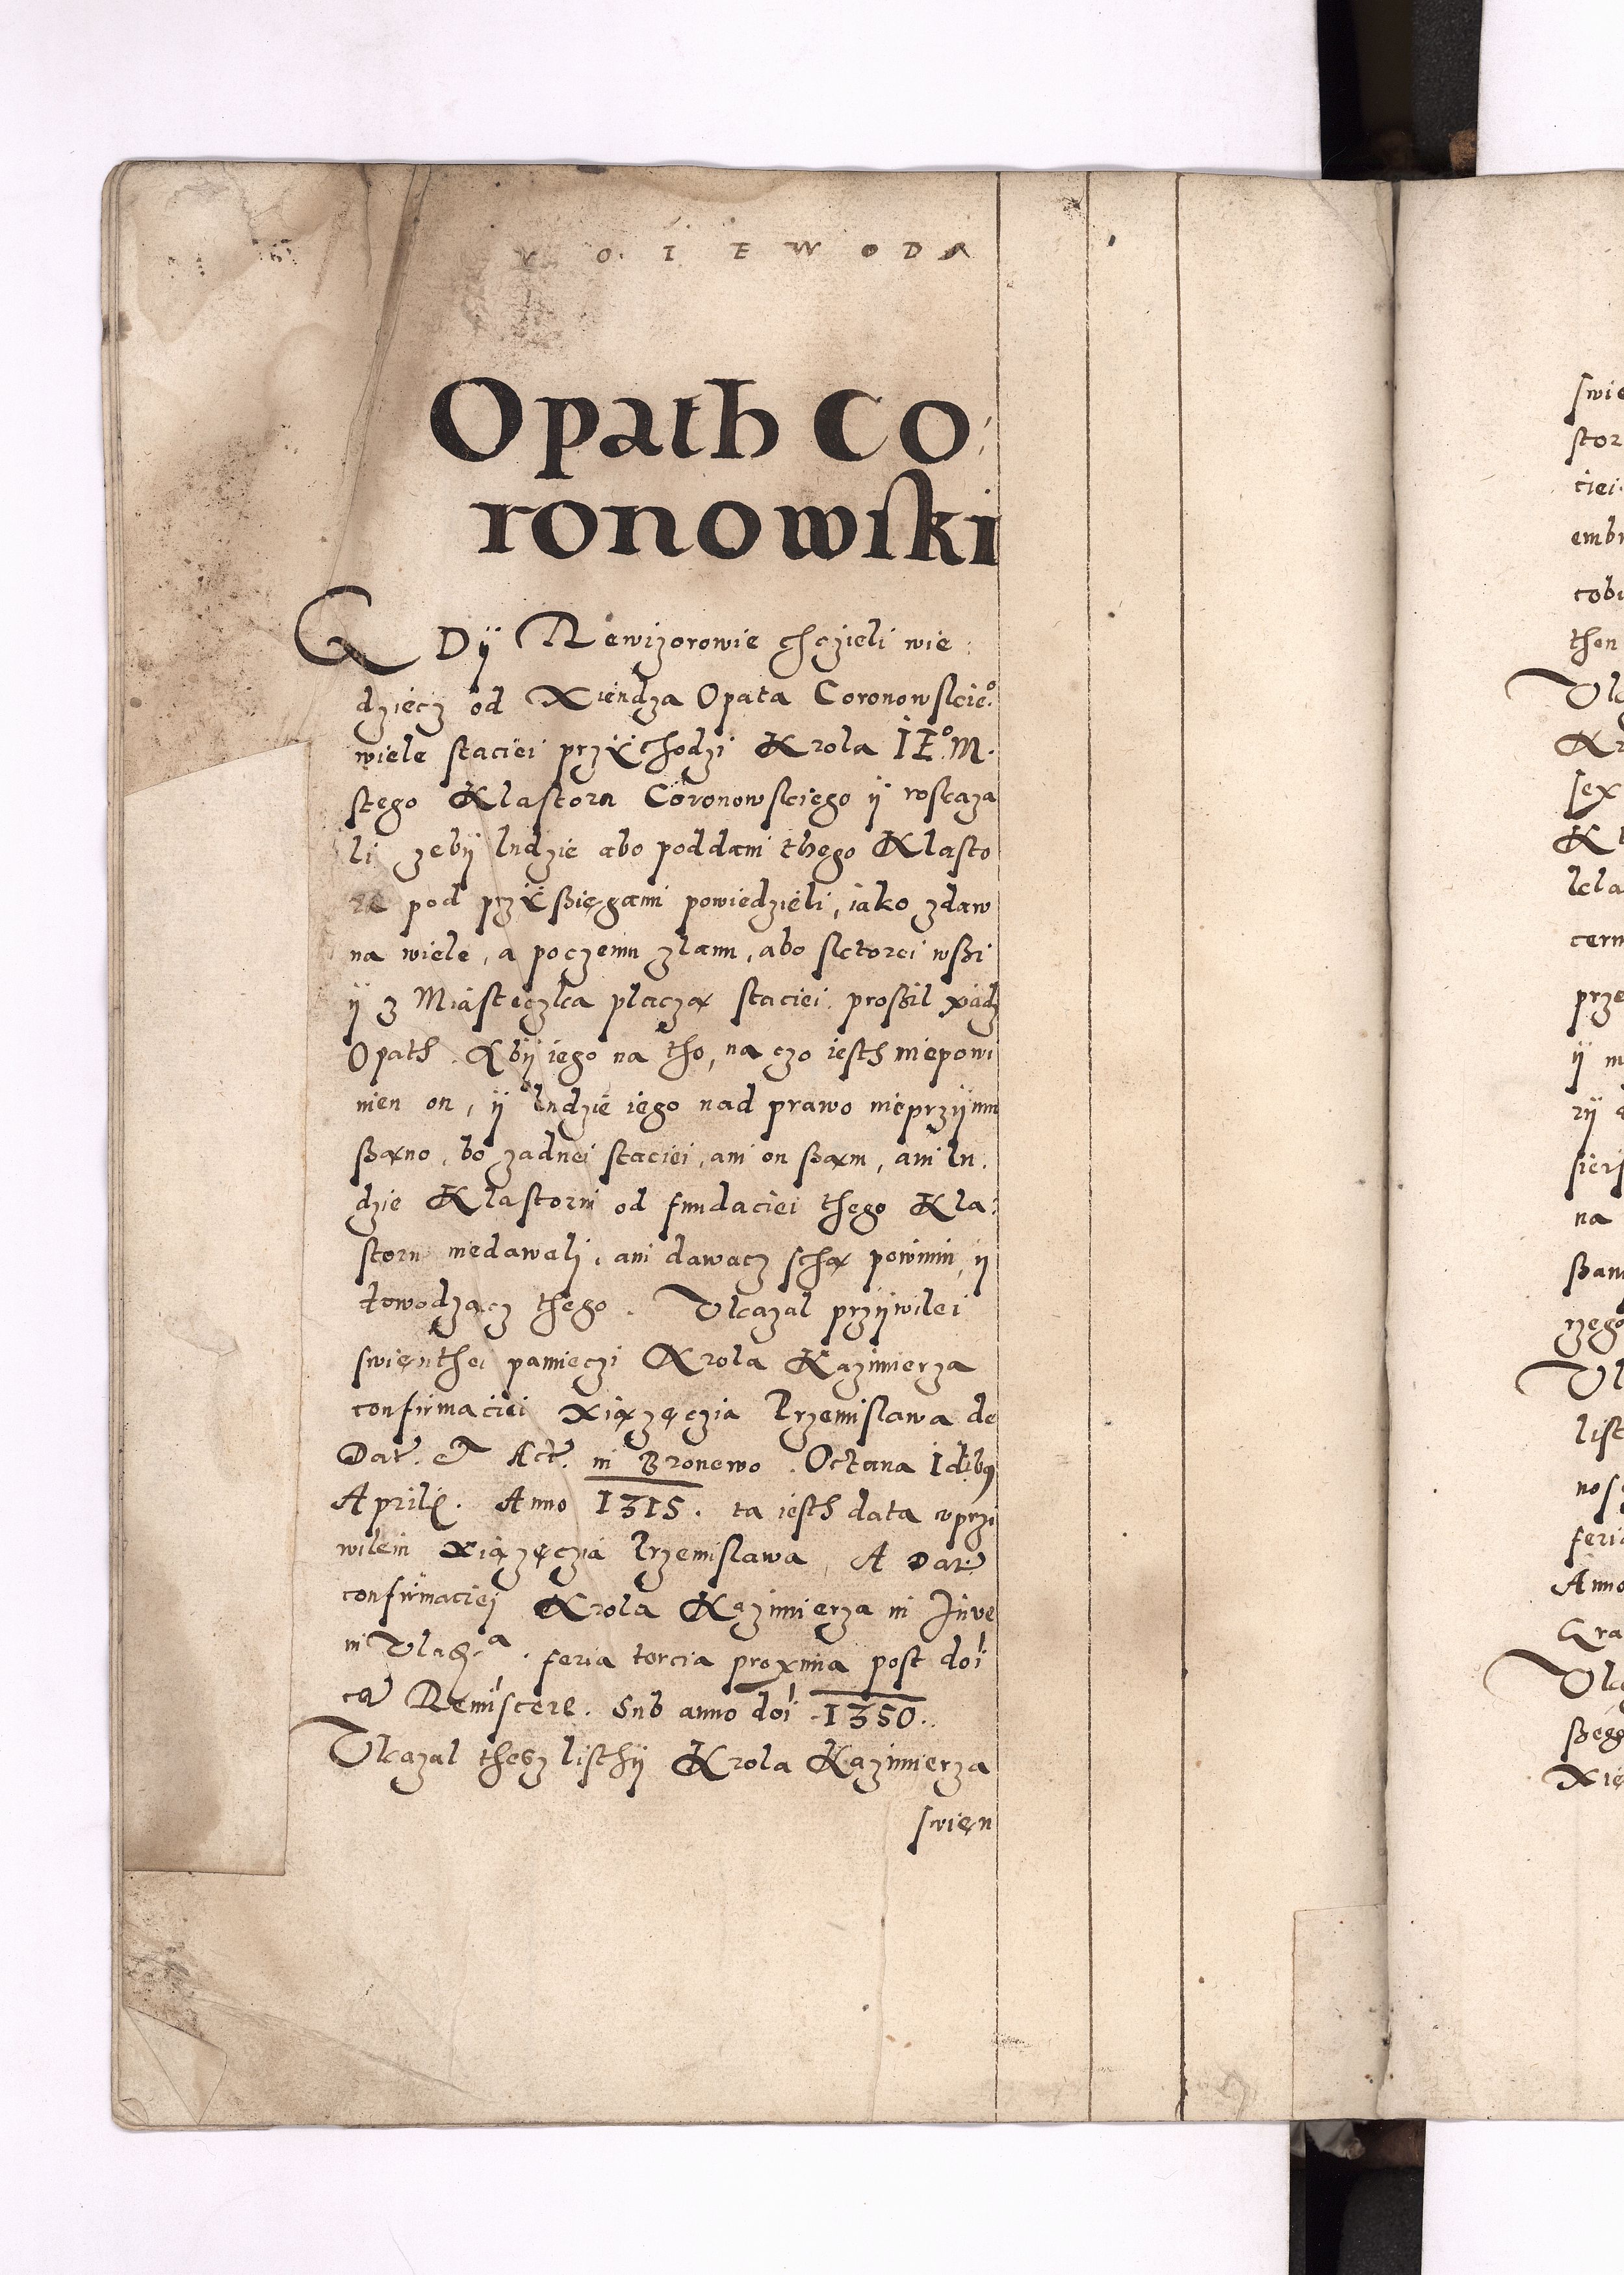 VOIEWODA
Opath Co:
ronowski
GDÿ Rewizorowie chczieli wie:
dziecz od Xiendza Opata Coronowskieº.
wiele staciei przÿchodzi Krola IEº.M.
stego Klastoru Coronowskiego ÿ roskaza
li zebÿ ludzie abo poddani thego Klasto
ra pod przÿßięgami powiedzieli, iako zdaw
na wiele, a poczemu zlanu, abo sktorei wßi
ÿ z Miasteczka placzą staciei. proßil xiądz
Opath. Abÿ iego na tho, na czo iesth niepowi
nien on, ÿ ludzie iego nad prawo nieprzÿmu
ßano, bo zadnei staciei, ani on ßam, ani lu.
dzie Klastorni od fundaciei thego Kla:
storu niedawali, ani dawacz sthą powinni, ÿ
dowodzącz thego. Ukazal przÿwilei
swięnthei pamieczi Krola Kazimierza
confirmaciei Xiązęczia Przemislawa de
Dat. et Act. in Bronewo. Octaua Idibus
Aprilis. Anno 1315. ta iesth data wprzi
wileiu Xiązęczia Przemislawa, A Dat
confirmaciei Krola Kazimierza in Iuve
ni Vlad. a. feria tercia proxima post doi
ca Remiscere. Sub anno doi 1350.
Ukazal thesz listhÿ Krola Kazimierza
swięn
swie
stor
ciei
embr
cobu
then
Uk
Kr
sex
Kl
kla
cern
prze
ÿ m
rÿ
siers
na
ßam
rzego
Uk
list
nos
feria
Anno
Gra
Uka
ßeg
Xię